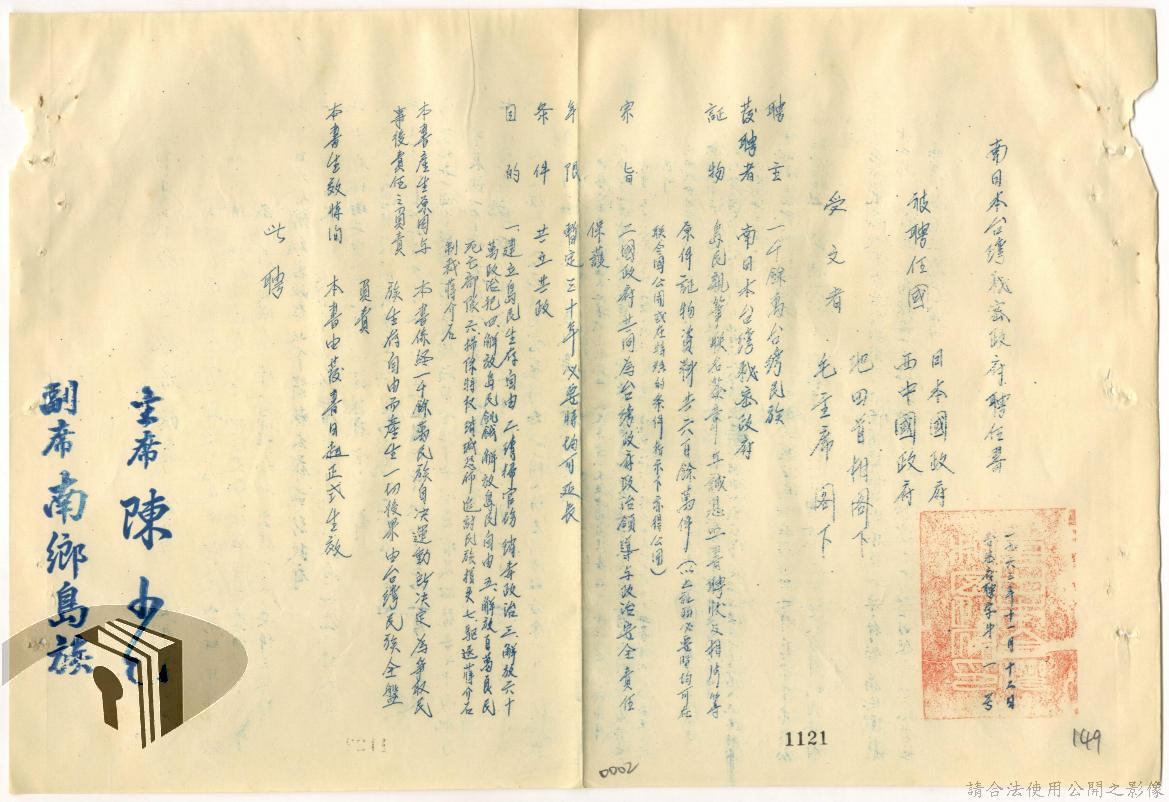 南日本台灣戰案政府聘任書
一九六三年十一月十二日
台急召聘字第二一号
被聘任國 日本國政府
西中國政府
受文者 池田首相閣下
毛主席閣下
聘主 一千餘萬台灣民族
發聘者 南日本台灣戰案政府
証物 島民親筆聯名簽章与誠懇血書聘狀及相片等
原件証物資料共六百餘萬件(以上証物必要時均可在
聯合國公開或在特殊的条件指示下亦得公開)
宗旨 二國政府共同為台灣政府政治領導与政治安全責任
保護
年限 暫定三十年必要時均可延長
条件 共立共政
目的 一、建立島民生存自由二、清掃官僚結毒政治三、解放六十
萬政治犯四、解放島民飢餓、解放島民自由五、解放百萬民民
死亡部隊六、掃除特权清滅恐怖、追討民族損失七、驅逐蔣介石
制裁蔣介石
本書產生原因与 本書係經一千餘萬民族自决運動所决定為爭权民
事後責任之負責 族生存自由而產生一切後果由台灣民族全盤
負責
本書生效時间 本書由發書日起正式生效
此聘
主席 陳少
副席 南鄉島族
1121
149
0002
請合法使用公開之影像